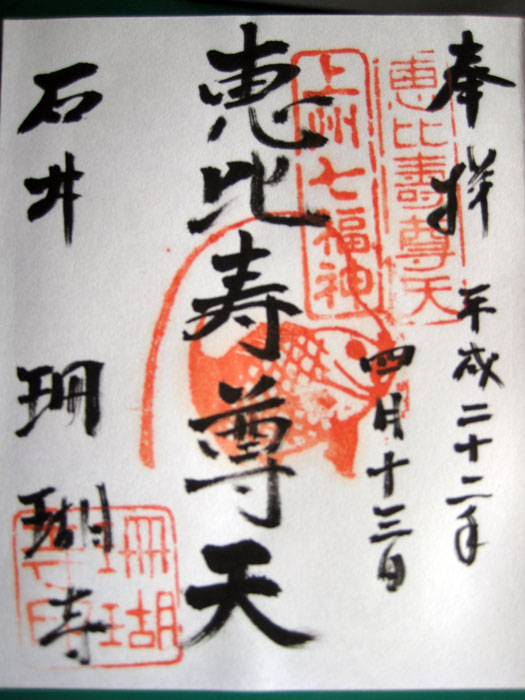 奉拝
平成二十二年
四月十三日
恵比壽尊天
上州七福神
恵比寿尊天
石井 珊瑚寺
珊瑚
寺印